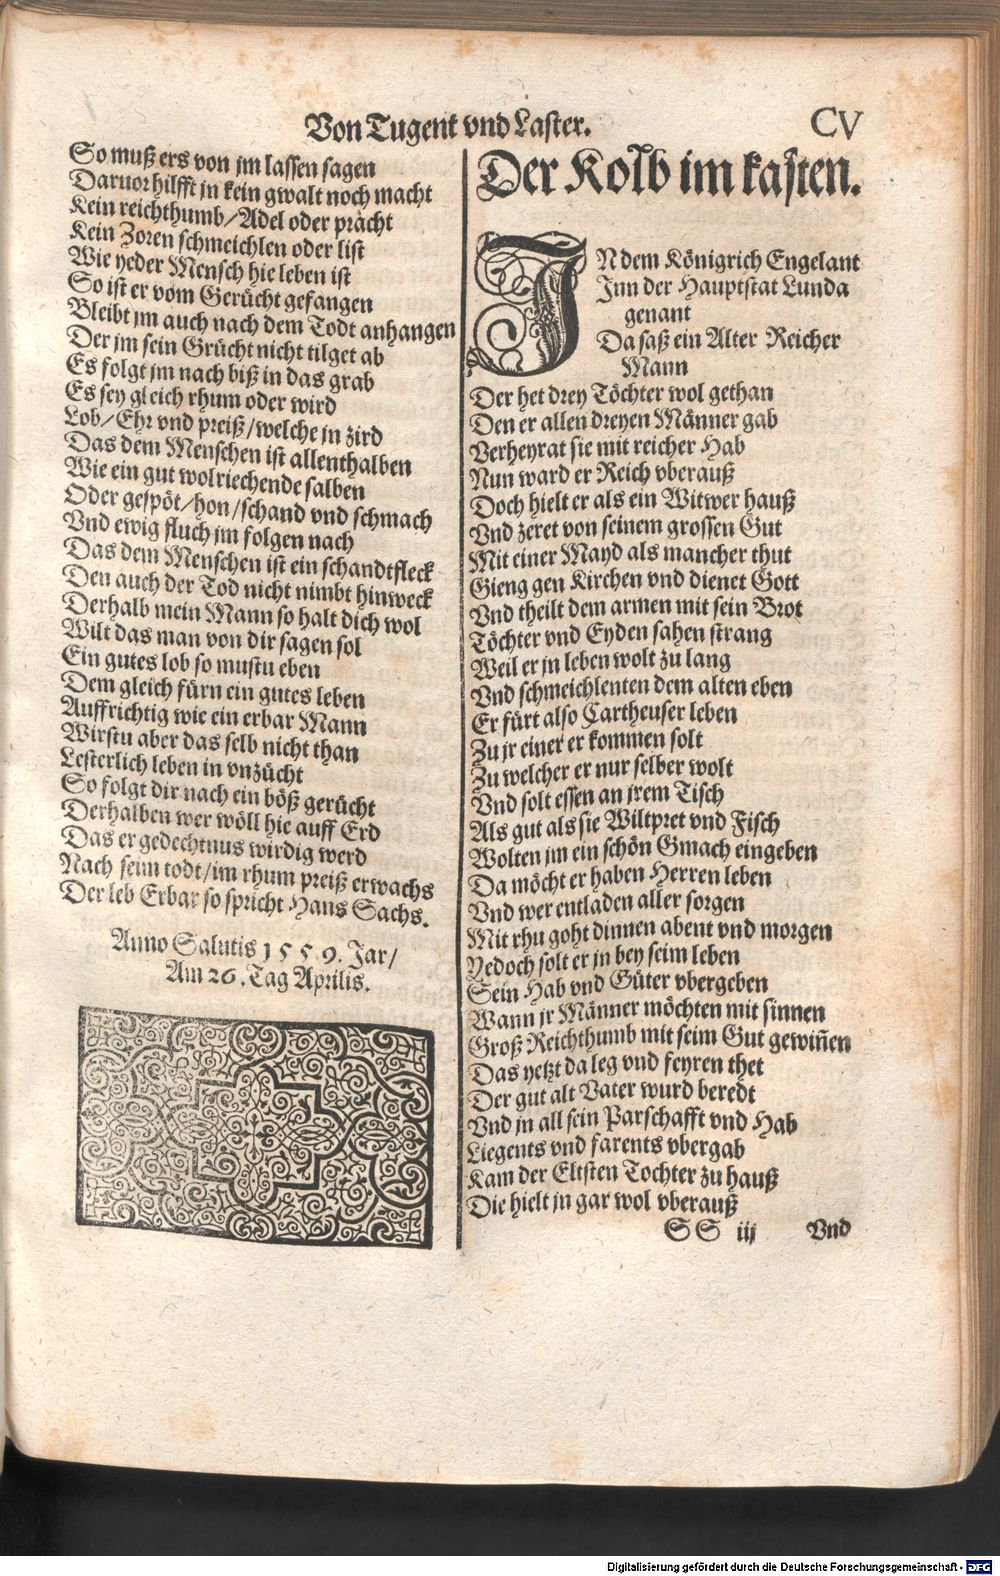 Von Tugent vnd Laster.
CV
So muß ers von jm lassen sagen
Daruor hilfft jn kein gwalt noch macht
Kein reichthumb/Adel oder pracht
Kein Zoren schmeichlen oder list
Wie yeder Mensch hie leben ist
So ist er vom Gerücht gefangen
Bleibt jm auch nach dem Todt anhangen
Der jm sein Grücht nicht tilget ab
Es folgt jm nach biß in das grab
Es sey gleich rhum oder wird
Lob/Ehr vnd preiß/welche jn zird
Das dem Menschen ist allenthalben
Wie ein gut wolriechende salben
Oder gespöt/hon/schand vnd schmach
Vnd ewig fluch jm folgen nach
Das dem Menschen ist ein schandtfleck
Den auch der Tod nicht nimbt hinweck
Derhalb mein Mann so halt dich wol
Wilt das man von dir sagen sol
Ein gutes lob so mustu eben
Dem gleich fürn ein gutes leben
Auffrichtig wie ein erbar Mann
Wirstu aber das selb nicht than
Lesterlich leben in vnzücht
So folgt dir nach ein böß gerücht
Derhalben wer wöll hie auff Erd
Das er gedechtnus wirdig werd
Nach seim todt/im rhum preiß erwachs
Der leb Erbar so spricht Hans Sachs.
Anno Salutis 1559. Jar/
Am 26. Tag Aprilis.
Der Kolb im kasten.
JNdem Königrich Engelant
Inn der Hauptstat Lunda
genant
Da saß ein Alter Reicher
Mann
Der het drey Töchter wol gethan
Den er allen dreyen Männer gab
Verheyrat sie mit reicher Hab
Nun ward er Reich vberauß
Doch hielt er als ein Witwer hauß
Vnd zeret von seinem grossen Gut
Mit einer Mayd als mancher thut
Gieng gen Kirchen vnd dienet Gott
Vnd theilt dem armen mit sein Brot
Töchter vnd Eyden sahen strang
Weil er jn leben wolt zu lang
Vnd schmeichlenten dem alten eben
Er fürt also Cartheuser leben
Zu jr einer er kommen solt
Zu welcher er nur selber wolt
Vnd solt essen an jrem Tisch
Als gut als sie Wiltpret vnd Fisch
Wolten jm ein schön Gmach eingeben
Da möcht er haben Herren leben
Vnd wer entladen aller sorgen
Mit rhu goht dinnen abent vnd morgen
Yedoch solt er jn bey seim leben
Sein Hab vnd Güter vbergeben
Wann jr Männer möchten mit sinnen
Groß Reichthumb mit seim Gut gewiñen
Das yetzt da leg vnd feyren thet
Der gut alt Vater wurd beredt
Vnd jn all sein Parschafft vnd Hab
Liegents vnd farents vbergab
Kam der Eltsten Tochter zu hauß
Die hielt jn gar wol vberauß
SS iij Vnd
Digitalisierung gefördert durch die Deutsche Forschungsgemeinschaft - DFG